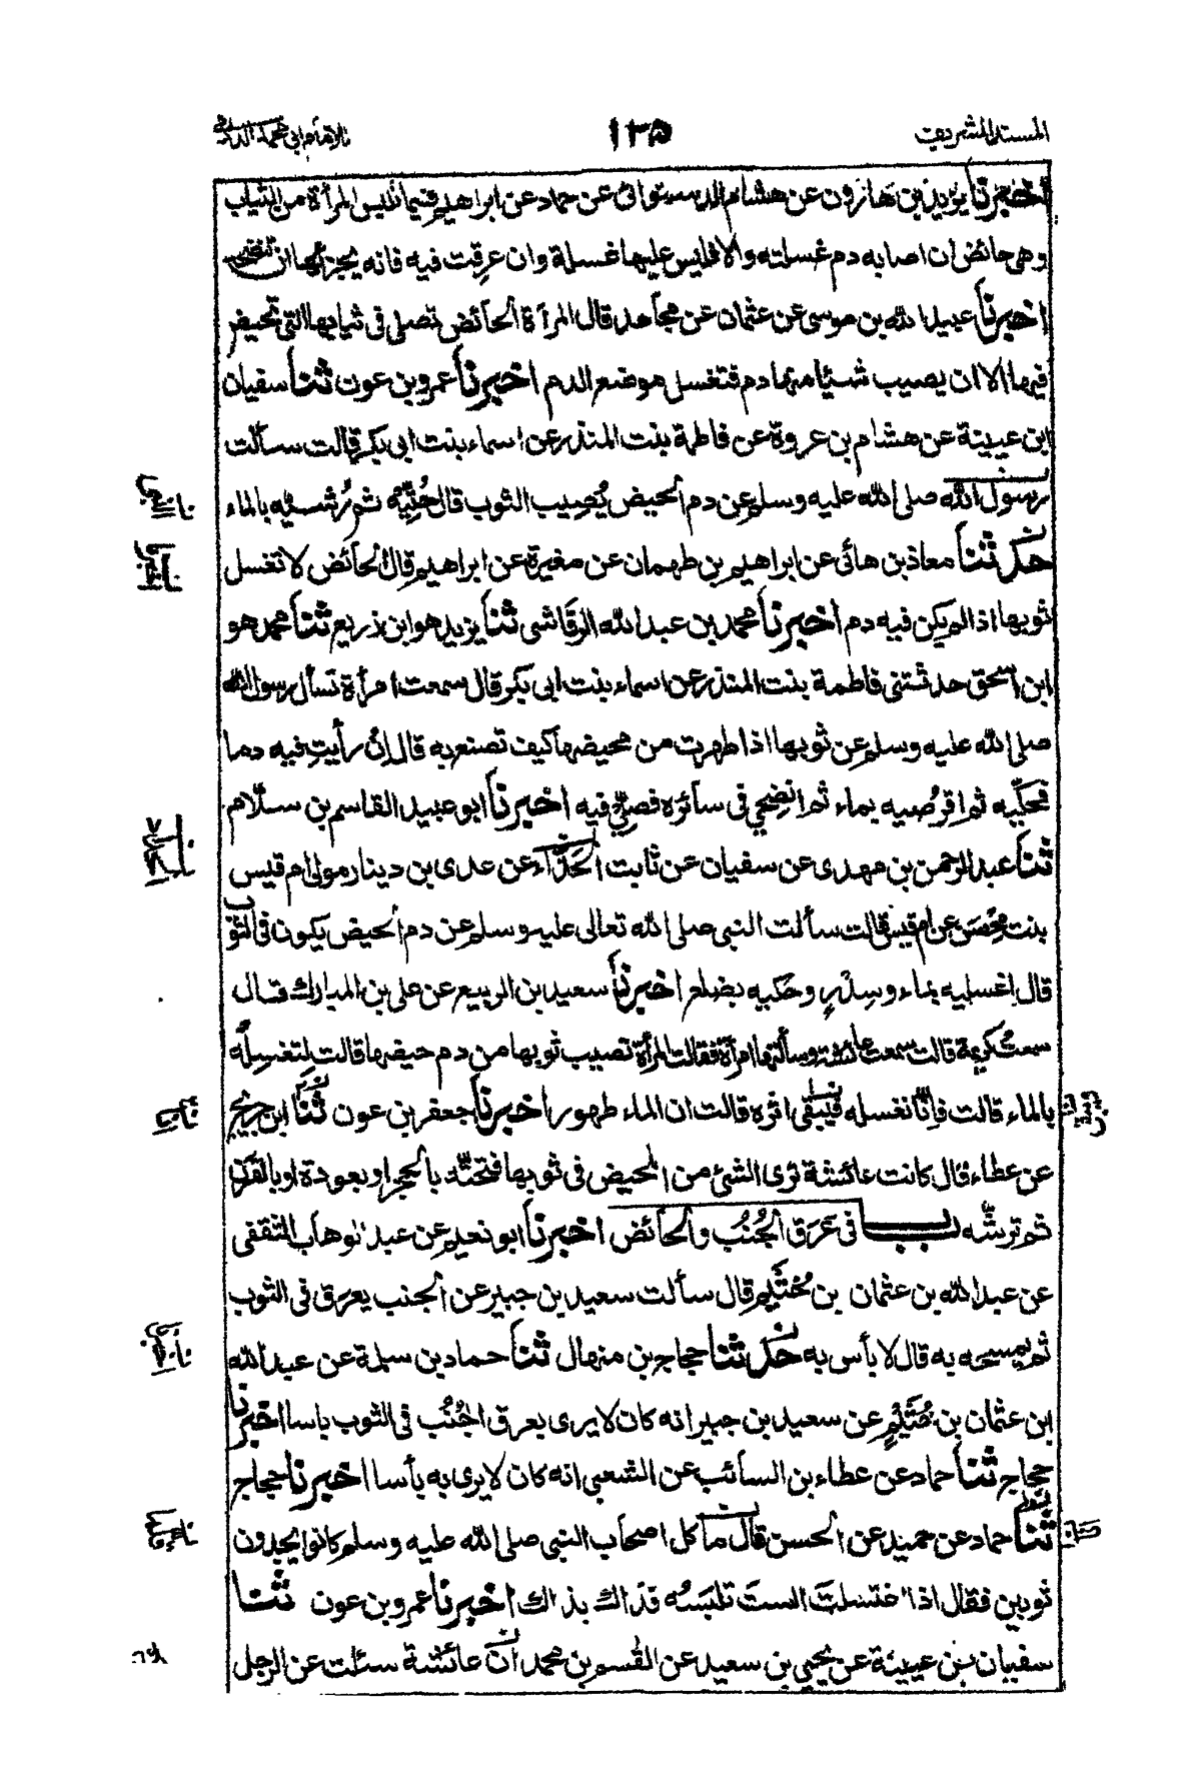 المسند الشريف
١٣٥
للامام ابي محمد الدارمي
أخبرنا يزيد بن هارون عن هشام الدستوائي عن حماد عن ابراهيم فيما تلبس المرأة من الثياب
وهي حائض ان اصابه دم غسلته والا فليس عليها غسلة وان عرقت فيه فانه يجزئها ان تنضحه
اخبرنا عبيد الله بن موسى عن عثمان عن مجاهد قال المرأة الحائض تصلي في ثيابها التي تحيض
فيها الا ان يصيب شيئا منها دم فتغسل موضع الدم اخبرنا عمرو بن عون ثنا سفيان
ابن عيينة عن هشام بن عروة عن فاطمة بنت المنذر عن اسماء بنت ابي بكر قالت سألت
رسول الله صلى الله عليه وسلم عن دم الحيض يُصيب الثوب قال حُتِّيْهُ ثم رُشيه بالماء
حدثنا معاذ بن هانئ عن ابراهيم بن طهمان عن مغيرة عن ابراهيم قال الحائض لا تغسل
ثوبها اذا لم يكن فيه دم اخبرنا محمد بن عبد الله الرقاشي ثنا يزيد هو ابن زريع ثنا محمد هو
ابن اسحق حدثتني فاطمة بنت المنذر عن اسماء بنت ابي بكر قال سمعت امرأة تسأل رسول الله
صلى الله عليه وسلم عن ثوبها اذا طهرت من محيضها كيف تصنع به قال اِنْ رأيتِ فيه دما
فحكِّيه ثم اقرُصيه بماء ثم انضِحي في سائره فصلِّي فيه اخبرنا ابو عبيد القاسم بن سلّام
ثنا عبد الرحمن بن مهدي عن سفيان عن ثابت الحَدَّاء عن عدي بن دينار مولى ام قيس
بنت مِحْصَن عن ام قيس قالت سألت النبي صلى الله تعالى عليه وسلم عن دم الحيض يكون في الثوب
قال اِغسليه بماء وسِدْرٍ وحَكيه بضلع اخبرنا سعيد بن الربيع عن علي بن المبارك قال
سمعتُ كريمة قالت سمعت عائشة وسألتها امرأة فقالت المرأة تصيب ثوبها من دم حيضها قالت لِتغسِلْه
بالماء قالت فاِنَّا نغسله فيَبقى اثره قالت ان الماء طهور اخبرنا جعفر بن عون ثنا ابن جريج
عن عطاء قال كانت عائشة ترى الشئ من المحيض في ثوبها فتحتُّه بالحجر او بعودة او بالقَرن
ثم ترشّه باب في عَرَق الجُنُب والحائض اخبرنا ابو نعيم عن عبد الوهاب الثقفي
عن عبد الله بن عثمان بن خُثَيم قال سألت سعيد بن جبير عن الجنب يعرق في الثوب
ثم يمسحه به قال لا بأس به حدثنا حجاج بن منهال ثنا حماد بن سلمة عن عبد الله
ابن عثمان بن خُثَيْمٍ عن سعيد بن جبير انه كان لا يرى بعرق الجُنُب في الثوب باسا اخبرنا
حجاج ثنا حماد عن عطاء بن السائب عن الشعبي انه كان لا يرى به بأسا اخبرنا حجاج
ثنا حماد عن حميد عن الحسن قال ما كل اصحاب النبي صلى الله عليه وسلم كانوا يجدون
ثوبين فقال اذا اغتسلتَ الستَ تلبَسُه فذاك بذاك اخبرنا عمرو بن عون ثنا
سفيان بن عيينة عن يحيى بن سعيد عن القسم بن محمد ان عائشة سئلت عن الرجل